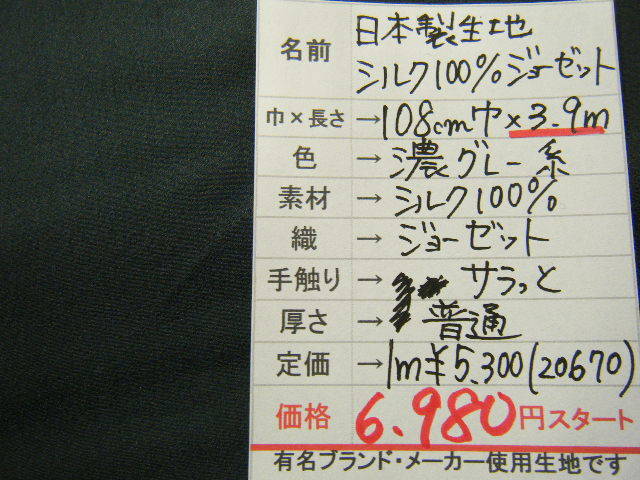 名前 日本製生地
シルク100%ジョーゼット
巾×長さ →108cm巾×3.9m
色 →濃グレー系
素材 →シルク100%
織 →ジョーゼット
手触り → サラっと
厚さ → 普通
定価 →1m¥5,300(20670)
価格 6,980円スタート
有名ブランド・メーカー使用生地です